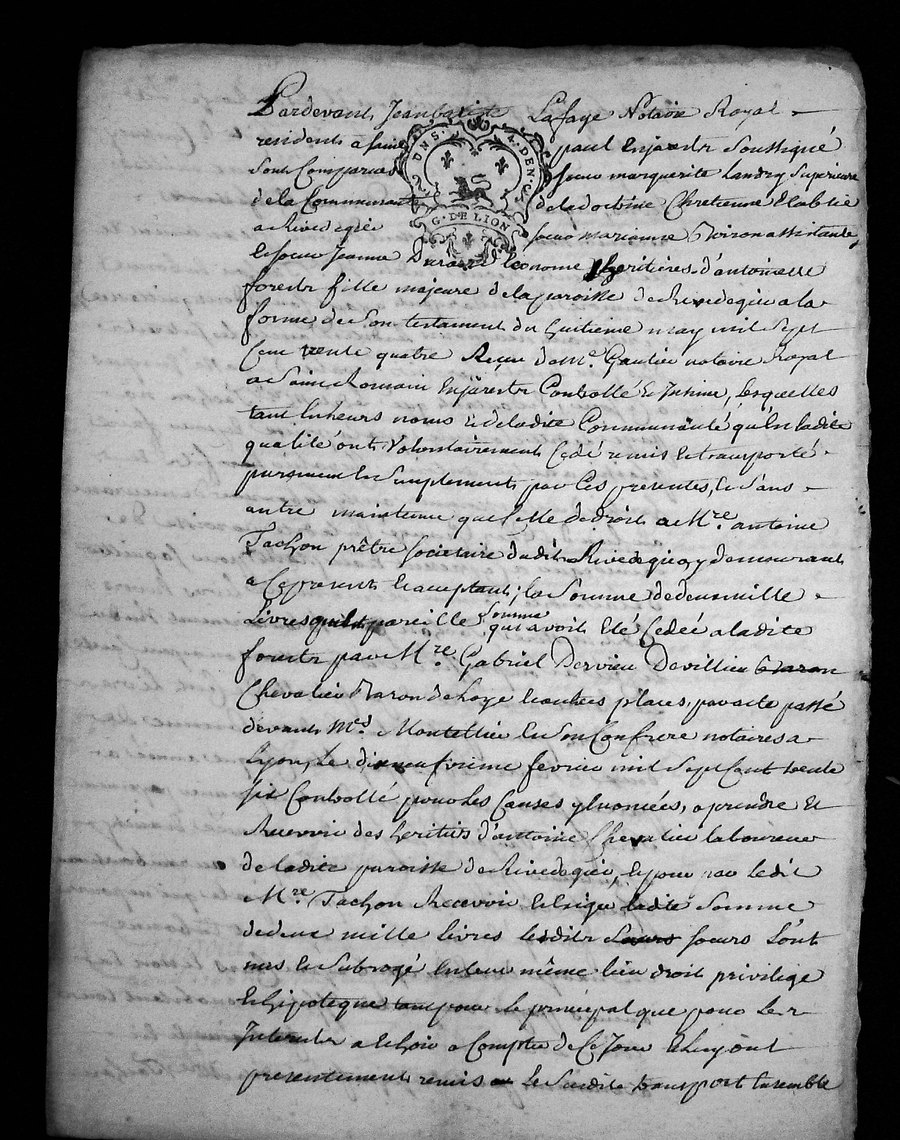 Pardevant Jeanbatiste Lafaye Notaire Royal
residents a paul Enjarestr Soussigné
Sont Comparues soeur marguerite Landry Supérieure
de la Communauté de la doctrine Chretienne Etablie
a Rivedegié soeur marianne assistante,
et soeur Jeanne Econome heritières d'antoinette
forestr fille majeure de la paroisse de Rivedegier a la
forme de Son testament du huitieme may mil Sept
Cent trente quatre Reçu de Me. Gautier notaire Royal
a Saint Romain Enjarestr Controllé & Insinué, Lesquelles
tant En leurs noms & de ladite Communauté qu'En ladite
qualité ont Volontairement Cedé remis et transporté
purement et Simplement par Ces presentes, et Sans
autre maintenue que Celle de droit a Mre. antoine
Tachon prêtre Societaire dudit Rivedegier y demeurant
a Ce present et acceptant, la Somme de deux mille
Livres pareille Somme qui avoit Eté Cedée a ladite
forestr par Mre. Gabriel Dervieu De villieu baron
Chevalier Baron de Loye et autres places, par acte passé
devant Mes. Montellier et Son Confrere notaires a
Lyon, Le dixneufvieme fevrier mil Sept Cent trente
six Controllé pour les Causes y Enoncées, a prendre Et
Recevoir des heritiers d'antoine Chevalier laboureur
de ladite paroisse de Rivedegier, Et pour par Ledit
Mre. Tachon Recevoir Et Exiger ladite Somme
de deux mille livres lesdites soeurs L'ont
mis et Subrogé En leur même lieu droit privilege
Et hipoteque tant pour Le principal que pour Les
Interests a Echoir a Compter de Ce Jour Et luy ont
presentement remis Le Susdit transport Ensemble